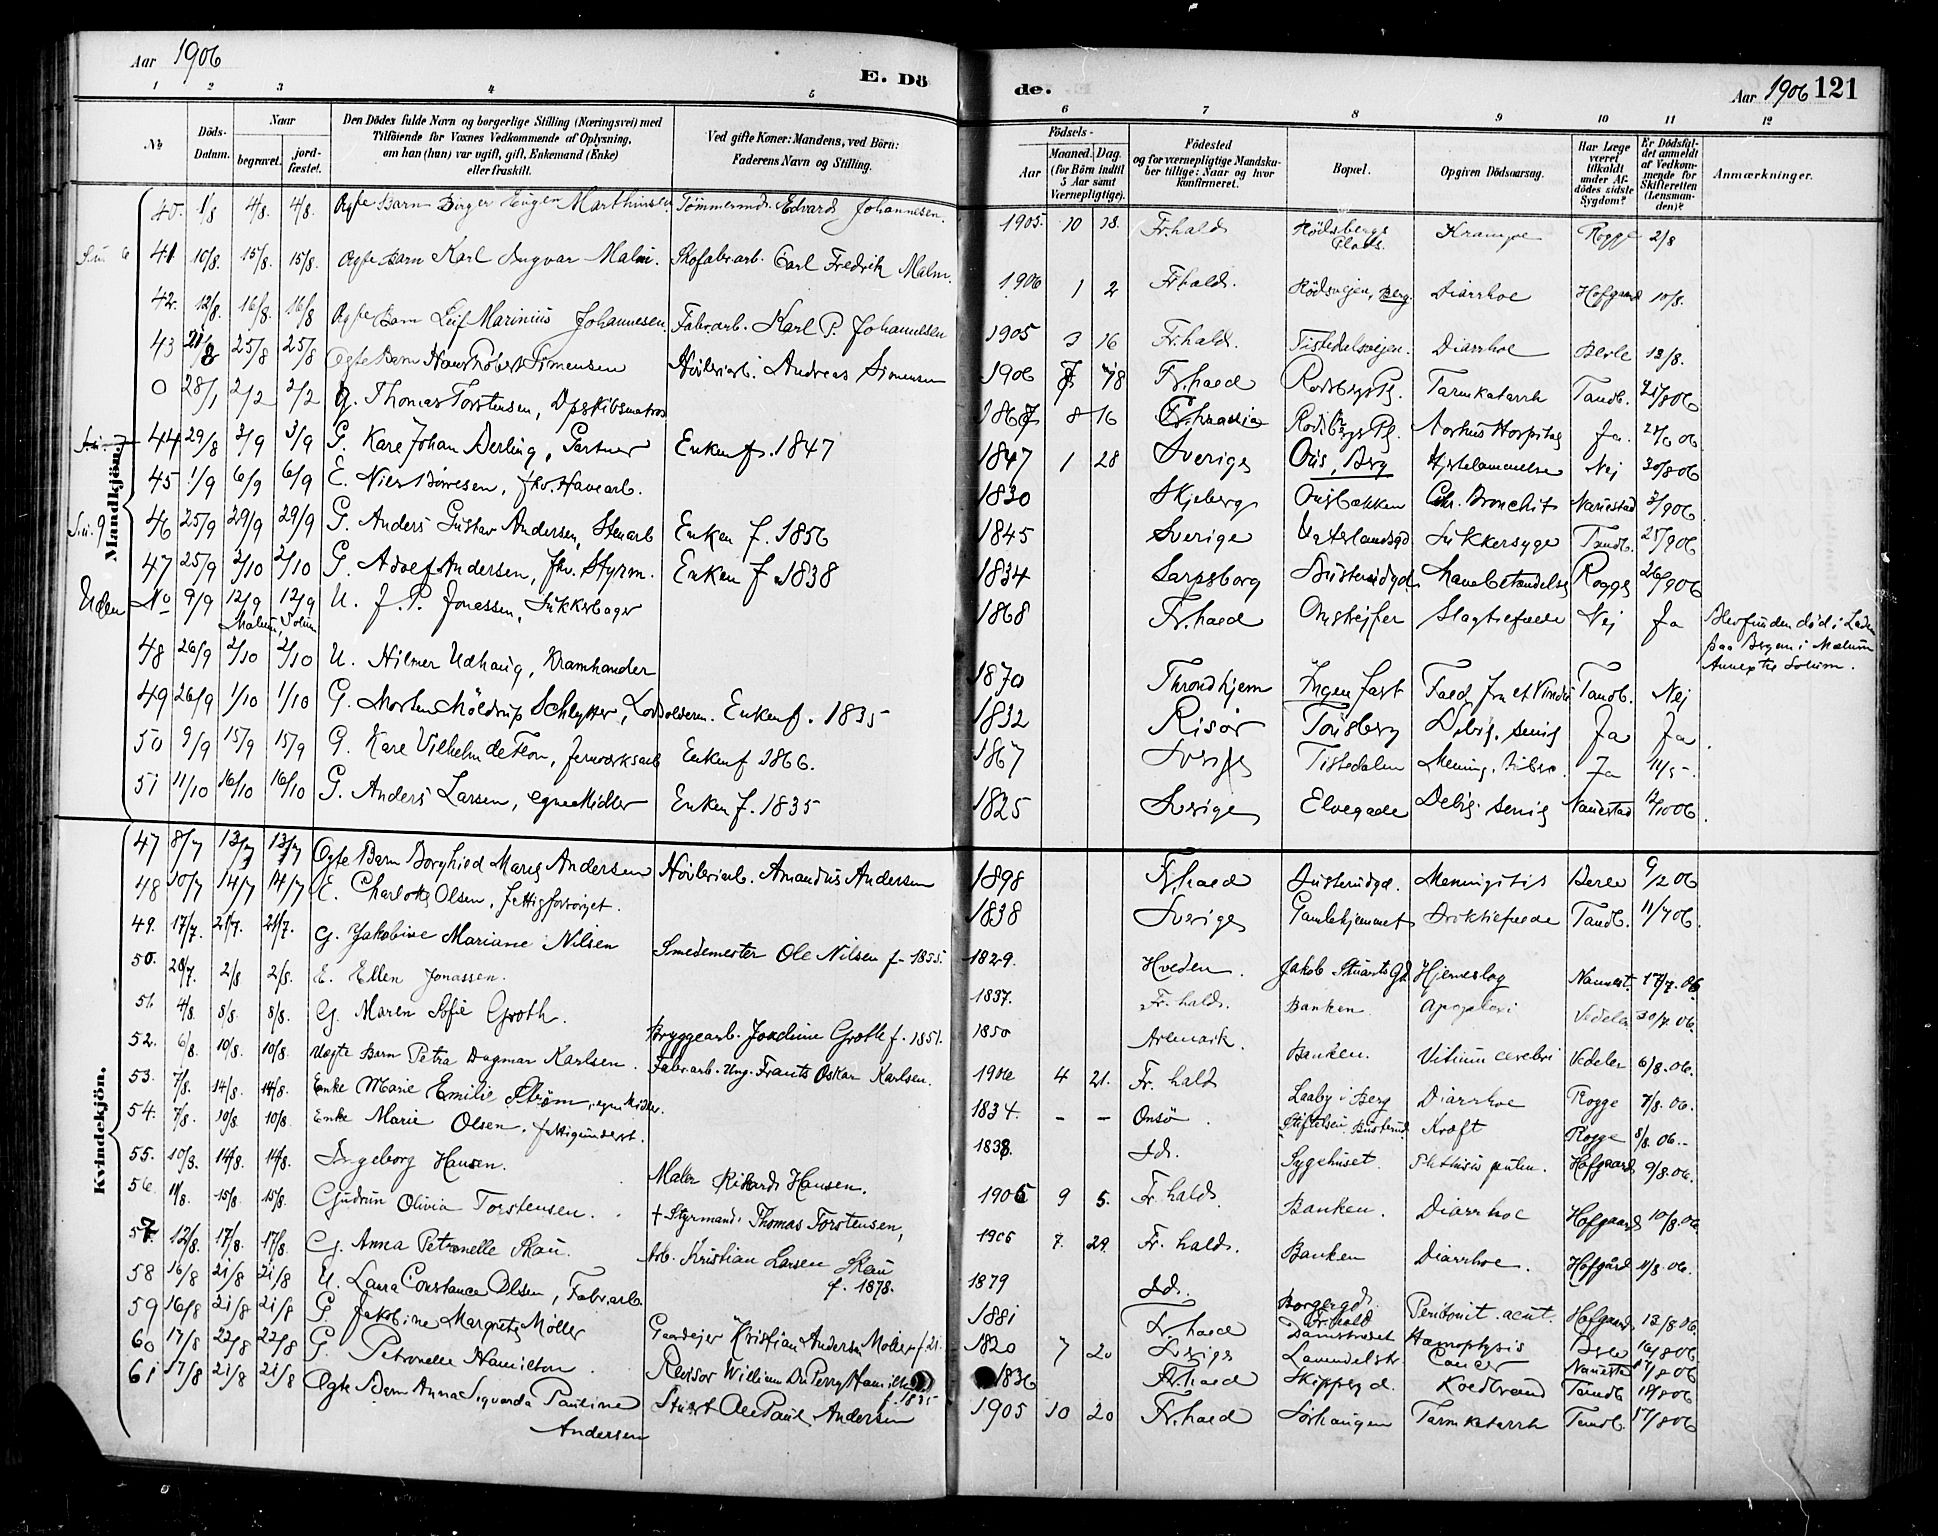 Aar 1906
E. Dö
de.
Aar 1906 121
1 2 3 4 5 6 7 8 9 10 11 12
№
Döds-Datum.
Naar
begravet.
jord-fæstet.
Den Dödes fulde Navn og borgerlige Stilling (Næringsvei) med
Tilföiende for Voxnes Vedkommende af Oplysning,
om han (hun) var ugift, gift, Enkemand (Enke)
eller fraskilt.
Ved gifte Koner: Mandens, ved Börn:
Faderens Navn og Stilling.
Födsels-
Aar
Maaned. Dag.
(for Börn indtil
5 Aar samt
Værnepligtige).
Födested
og for værnepligtige Mandska-
ber tillige: Naar og hvor
konfirmeret.
Bopæl.
Opgiven Dödsaarsag.
Har Læge
været
tilkaldt
under Af-
dödes sidste
Sygdom?
Er Dödsfal-
det anmeldt
af Vedkom-
mende for
Skifteretten
(Lensman-
den)?
Anmærkninger.
Mandkjön.
40. 1/8 4/8. 4/8. Ægte Barn Birger Eugen Marthinsen Tömmermd. Edvard Johannesen. 1905. 10 18. Fr.hald. Rödsbergs Plads. Krampe Rogge 2/8
41 10/8. 15/8. 15/8. Ægte Barn Karl Ingvar Malm. Skofabrarb. Carl Fredrik Malm. 1906 1 2 Fr.hald. Rödsveien, Berg. Diarrhoe Hofgaard 10/8.
42. 12/8. 16/8. 16/8 Ægte Barn Leif Marinius Johannesen Fabrarb. Karl P. Johannesen 1905 3 16 Fr.hald. Tistedalsveien. Diarrhoe Berle 13/8.
43 21/8 25/8 25/8 Ægte Barn Hans Robert Simensen Høvleriarb. Andreas Simensen 1906 18 Fr.hald Rødsbergs Pl. Tarmkatarrh Tandb. 21/8 06
0 28/1 2/2 2/2 G. Thomas Torstensen, Dpskibsmatros 1867 8 16 Rødsbergs Pl. Aarhus Hospital Ja.
44 29/8 3/9 3/9 G. Karl Johan Derling, Gartner Enken f. 1847 1847 1 28 Sverige Ous, Berg Hjertelammelse Nej 30/8 06
45 1/9 6/9 6/9 E. Niels Börresen, fhv. Havearb. 1830 Skjeberg Ousbakken Chr. Bronchit Nanestad 3/9 06
46 25/9 29/9 29/9 G. Anders Gustav Andersen, Stenarb Enken f. 1856 1845 Sverige Vaterlandsgd. Sukkersyge Tandb. 25/9 06
47 25/9 2/10 2/10 G. Adolf Andersen, fhv. Styrm. Enken f. 1838 1834 Sarpsborg Busterudgd. Rogge 26/9 06
Uden No 9/9 12/9 12/9 U. J. P. Jonassen, Sukkerbager 1868 Fr.hald Slagtilfælde Nej Ja Blev funden död i Laden
paa Bergem i Mælum
Annex til Solum.
Mælum, Solum
48 26/9 2/10 2/10 U. Hilmer Udhaug, Kramhander 1870 Throndhjem Ingen fast Fald fra et Vindu Tandb. Nej
49 26/9 1/10 1/10 G. Morten Möldrup Schlytter, Lodsolderm. Enken f. 1835 1832 Risör Tönsberg Debig. senig Ja Ja
50 9/9 15/9 15/9 G. Karl Vilhelm de Flon, Jernværksarb Enken f 1866. 1867 Sverige Tistedalen Mening. tuberc. Ja
51 11/10 16/10 16/10 G. Anders Larsen, egne Midler Enken f. 1835 1825 Sverige Elvegade Debig. senig Nanestad 12/10 06
Kvindekjön.
47 8/7 13/7 13/7 Ægte Barn Borghild Marie Andersen Høvleriarb. Amandus Andersen 1898 Fr.hald Busterudgd. Meningitis Berle
48 10/7 14/7 14/7 E. Charlotte Olsen, fattigforsörget. 1838 Sverige Gamlehjemmet Tandb. 11/7 06.
49. 17/7. 21/7. 21/7. G. Jakobine Mariane Nilsen Smedemester Ole Nilsen f. 1855. 1829. Hveden. Jakob Stuarts Gd. Hjerneslag Nannest. 17/7. 06.
50. 28/7. 2/8 2/8. E. Ellen Jonassen. 1837. Fr. hald. Banken. Apoplexi Vedeler 30/7. 06.
51. 4/8. 8/8. 8/8. G. Maren Sofie Groth. Bryggearb. Joachim Groth f. 1851. 1850 Aremark. Banken. Vitium cerebri Vedeler 6/8. 06.
52. 6/8. 10/8. 10/8. Uægte Barn Petra Dagmar Karlsen. Fabr.arb. Ung. Frants Oskar Karlsen. 1906 4 21. Fr. hald Laaby i Berg Diarrhoe Rogge 7/8. 06.
53. 7/8. 14/8. 14/8. Enke Marie Emilie Ström, egne Midler. 1834. – – Onsö Stiftelsen Busterud. Kræft Rogge 8/8. 06.
54. 7/8. 10/8. 10/8. Enke Marie Olsen, fattigunderst. 1838. Id. Sygehuset. Phthisis pulm. Hofgaard 9/8. 06.
55. 10/8. 14/8. 14/8. Ingeborg Hansen. Maler Rikard Hansen. 1905 9 5. Fr. hald. Banken. Diarrhoe Hofgaard 10/8. 06.
56. 11/8. 15/8. 15/8. Gudrun Olivia Torstensen. † Styrmand. Thomas Torstensen, 1905 7. 29. Fr. hald. Banken Diarrhoe. Hofgård 11/8. 06.
57. 12/8. 17/8. 17/8. G. Anna Petronelle Skau. Arb. Kristian Larsen Skau
f. 1878. 1879 Id. Borgergd. Fr.hald Peritonit. acut. Hofgaard 13/8. 06.
58 16/8 21/8 21/8 U. Laura Constance Olsen, Fabr.arb. 1881 Fr.hald Damstrædet Hæmophysis Berle 16/8 06
59 16/8 21/8 21/8 G. Jakobine Margrete Möller Gaardejer Kristian Andersen Möller f. 21. 1820 7 20 Sverige Lavendelstr. Cancer Nanestad 17/8 06
60 17/8 22/8 22/8 G. Petronelle Hamilton Revisor William Du Perry Hamilton
f. 1835 1836 Fr.hald Skippergd. Koldbrand Tandb. 18/8 06
61 17/8 21/8 21/8 Ægte Barn Anna Sigvarda Pauline
Andersen Stuert Ole Paul Andersen 1905 10 20 Fr.hald Sörhaugen Tarmkatarrh Tandb. 17/8 06